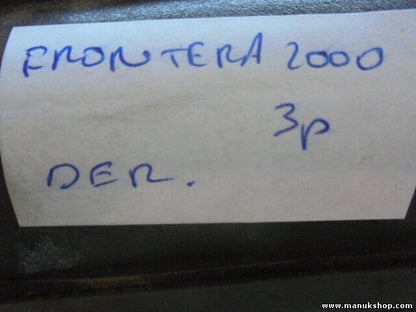 FRONTERA 2000
3p
DER.
www.manukshop.com